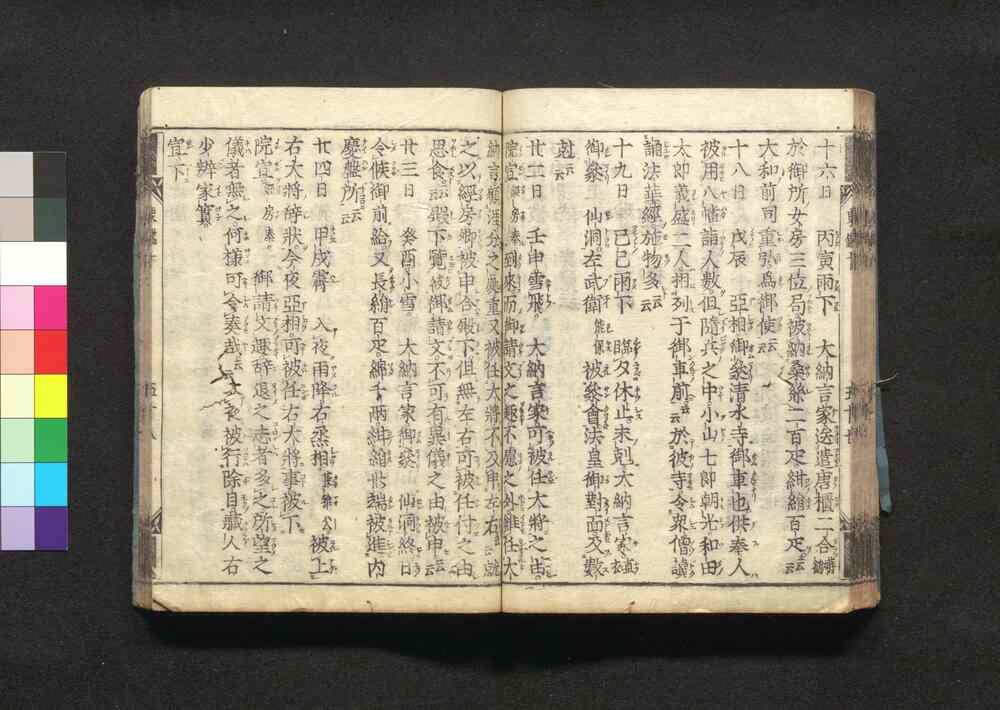 十六日　丙寅雨下　大納言家送遣唐櫃二合
於御所女房三位局被納桑糸二百疋紺絹百疋云云
大和前司重弘爲御使云云
十八日　戊辰　亞相御參清水寺御車也供奉人
被用八幡詣人數但隨兵之中小山七郎朝光和田
太郎義盛二人相列于御車前云云於彼寺令衆僧讀
誦法華經施物多云云
十九日　己巳雨下　臨夕休止未剋大納言家
御參　仙洞左武衛能保被參會法皇御對面及數
剋云云
廿二日　壬申雪飛　大納言家可被任大將之由
院宣房奉到來而御請文之趣不慮之外雖任大
納言觸涯分之處重又被任大將不及申左右云云就
之以經房卿被申合殿下但無左右可被任付之由
思食云云殿下覽彼御請文不可有異儀之由被申云云
廿三日　癸酉小雪　大納言家御參　仙洞終日
令候御前給又長絹百疋綿千兩紺絹卅端被進内
臺盤所云云
廿四日　甲戌霽　入夜雨降右丞相被上
右大將辭狀今夜亞相可被任右大將事被下
院宣房奉　御請文趣辞退之志者多之所望之
儀者無之何樣可令奏哉云云　被行除目職人右
少辨家實
宣下